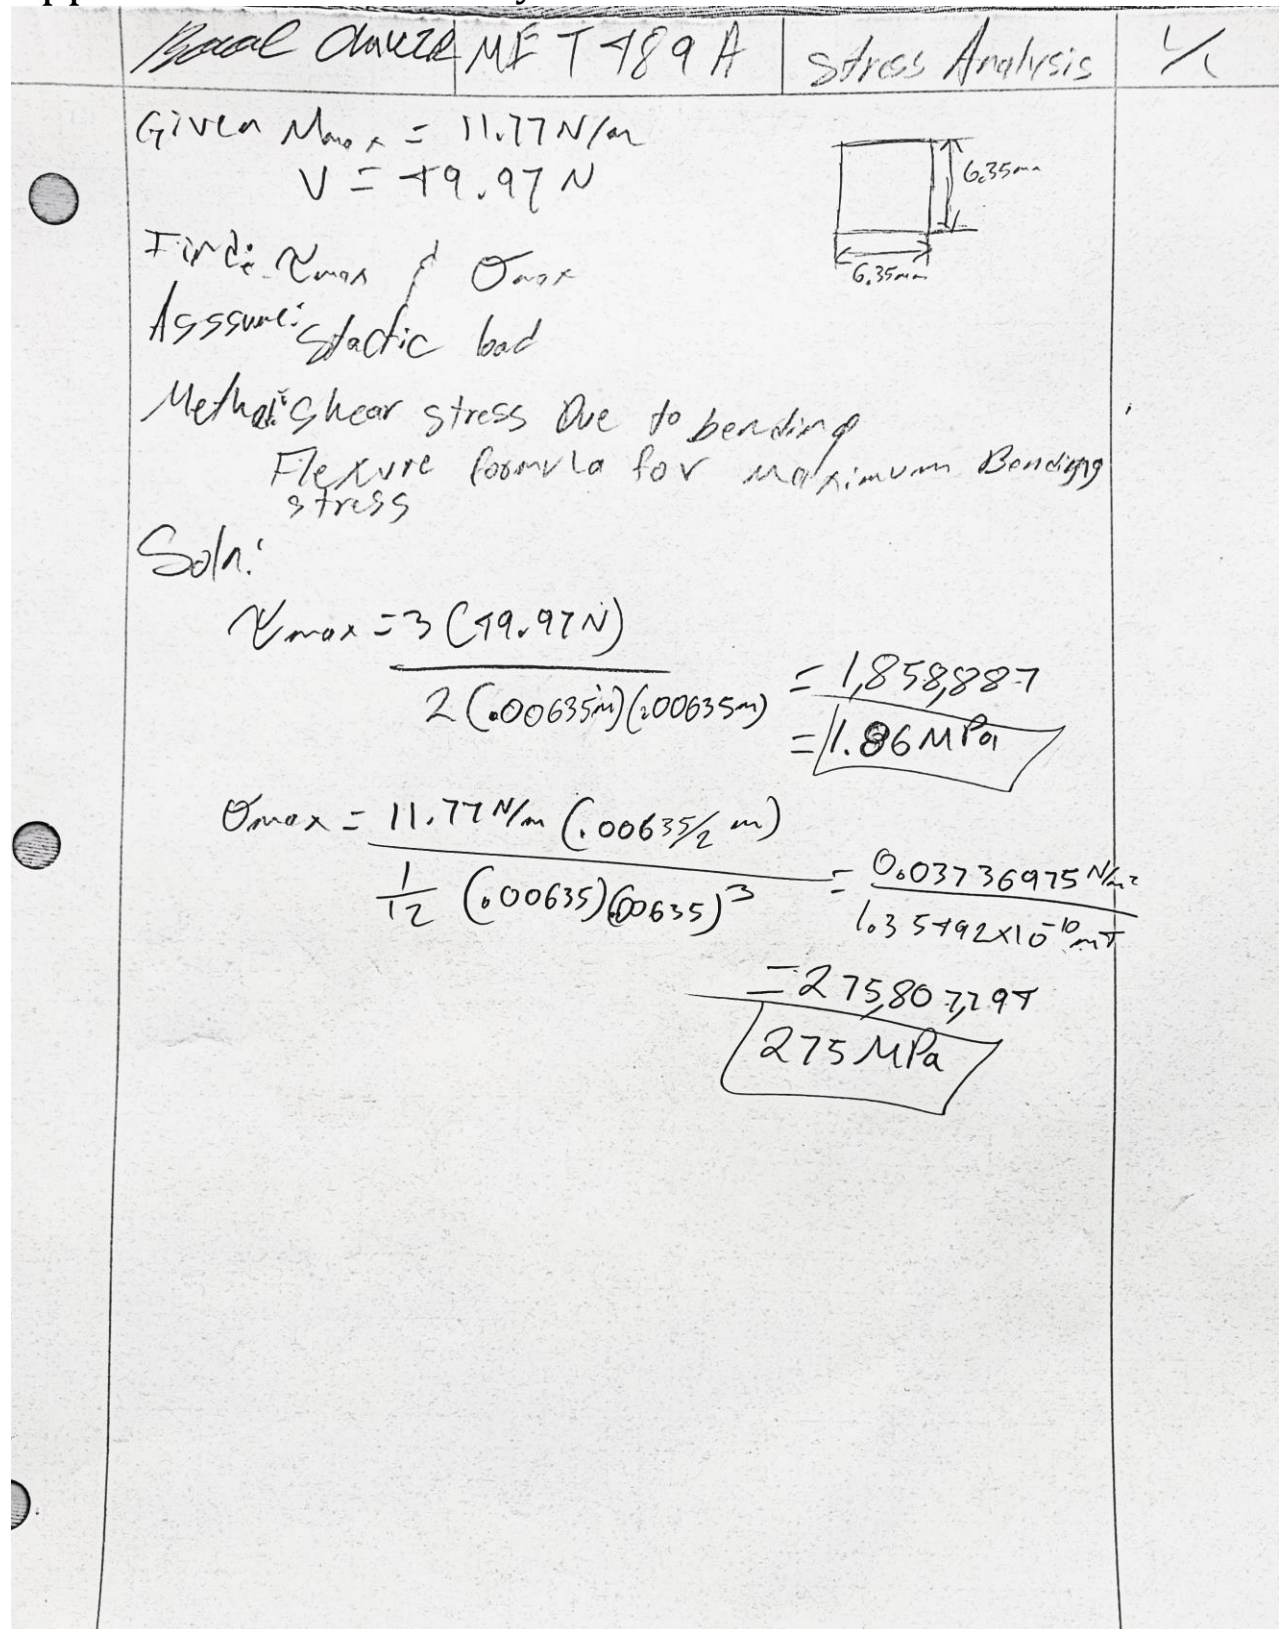 MET 489 A
Stress Analysis
1/1
Given Mmax = 11.77 N/m
V = 49.97 N
6.35mm
6.35mm
Find: τmax & σmax
Asssume: Stactic load
Method: Shear stress Due to bending
Flexure formula for maximum Bending
stress
Soln:
τmax = 3 (49.97N)
2 (.00635m)(.00635m)
= 1,858,887
= 1.86 MPa
σmax = 11.77 N/m (.00635/2 m)
1/12 (.00635)(.00635)^3
= 0.03736975 N/m²
1.35492x10^-10 m4
= 275,807,794
275 MPa